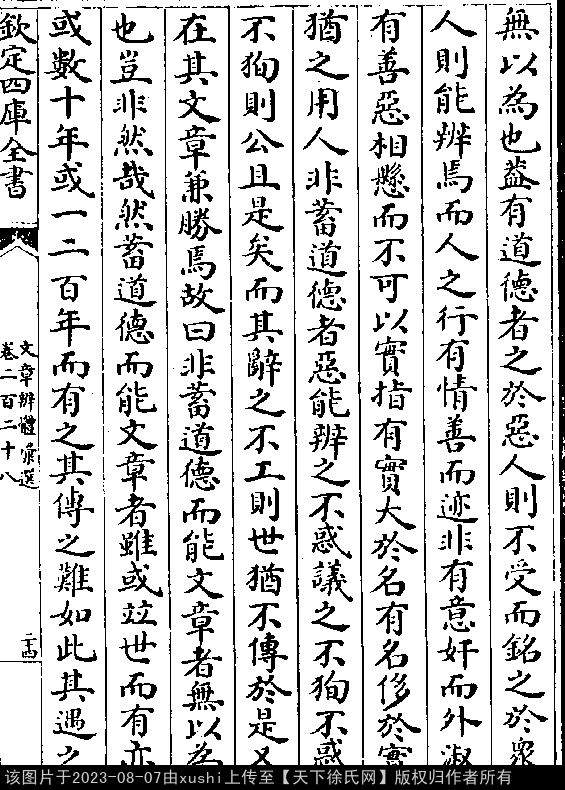 無以為也葢有道德者之於惡人則不受而銘之於衆
人則能辨焉而人之行有情善而迹非有意奸而外淑
有善惡相懸而不可以實指有實大於名有名侈於實
猶之用人非蓄道德者惡能辨之不惑議之不狥不惑
不狥則公且是矣而其辭之不工則世猶不傳於是又
在其文章兼勝焉故曰非蓄道德而能文章者無以為
也豈非然哉然蓄道德而能文章者雖或竝世而有亦
或數十年或一二百年而有之其傳之難如此其遇之
欽定四庫全書
文章辨體彚選
卷二百二十八
二十四
该图片于2023-08-07由xushi上传至【天下徐氏网】版权归作者所有